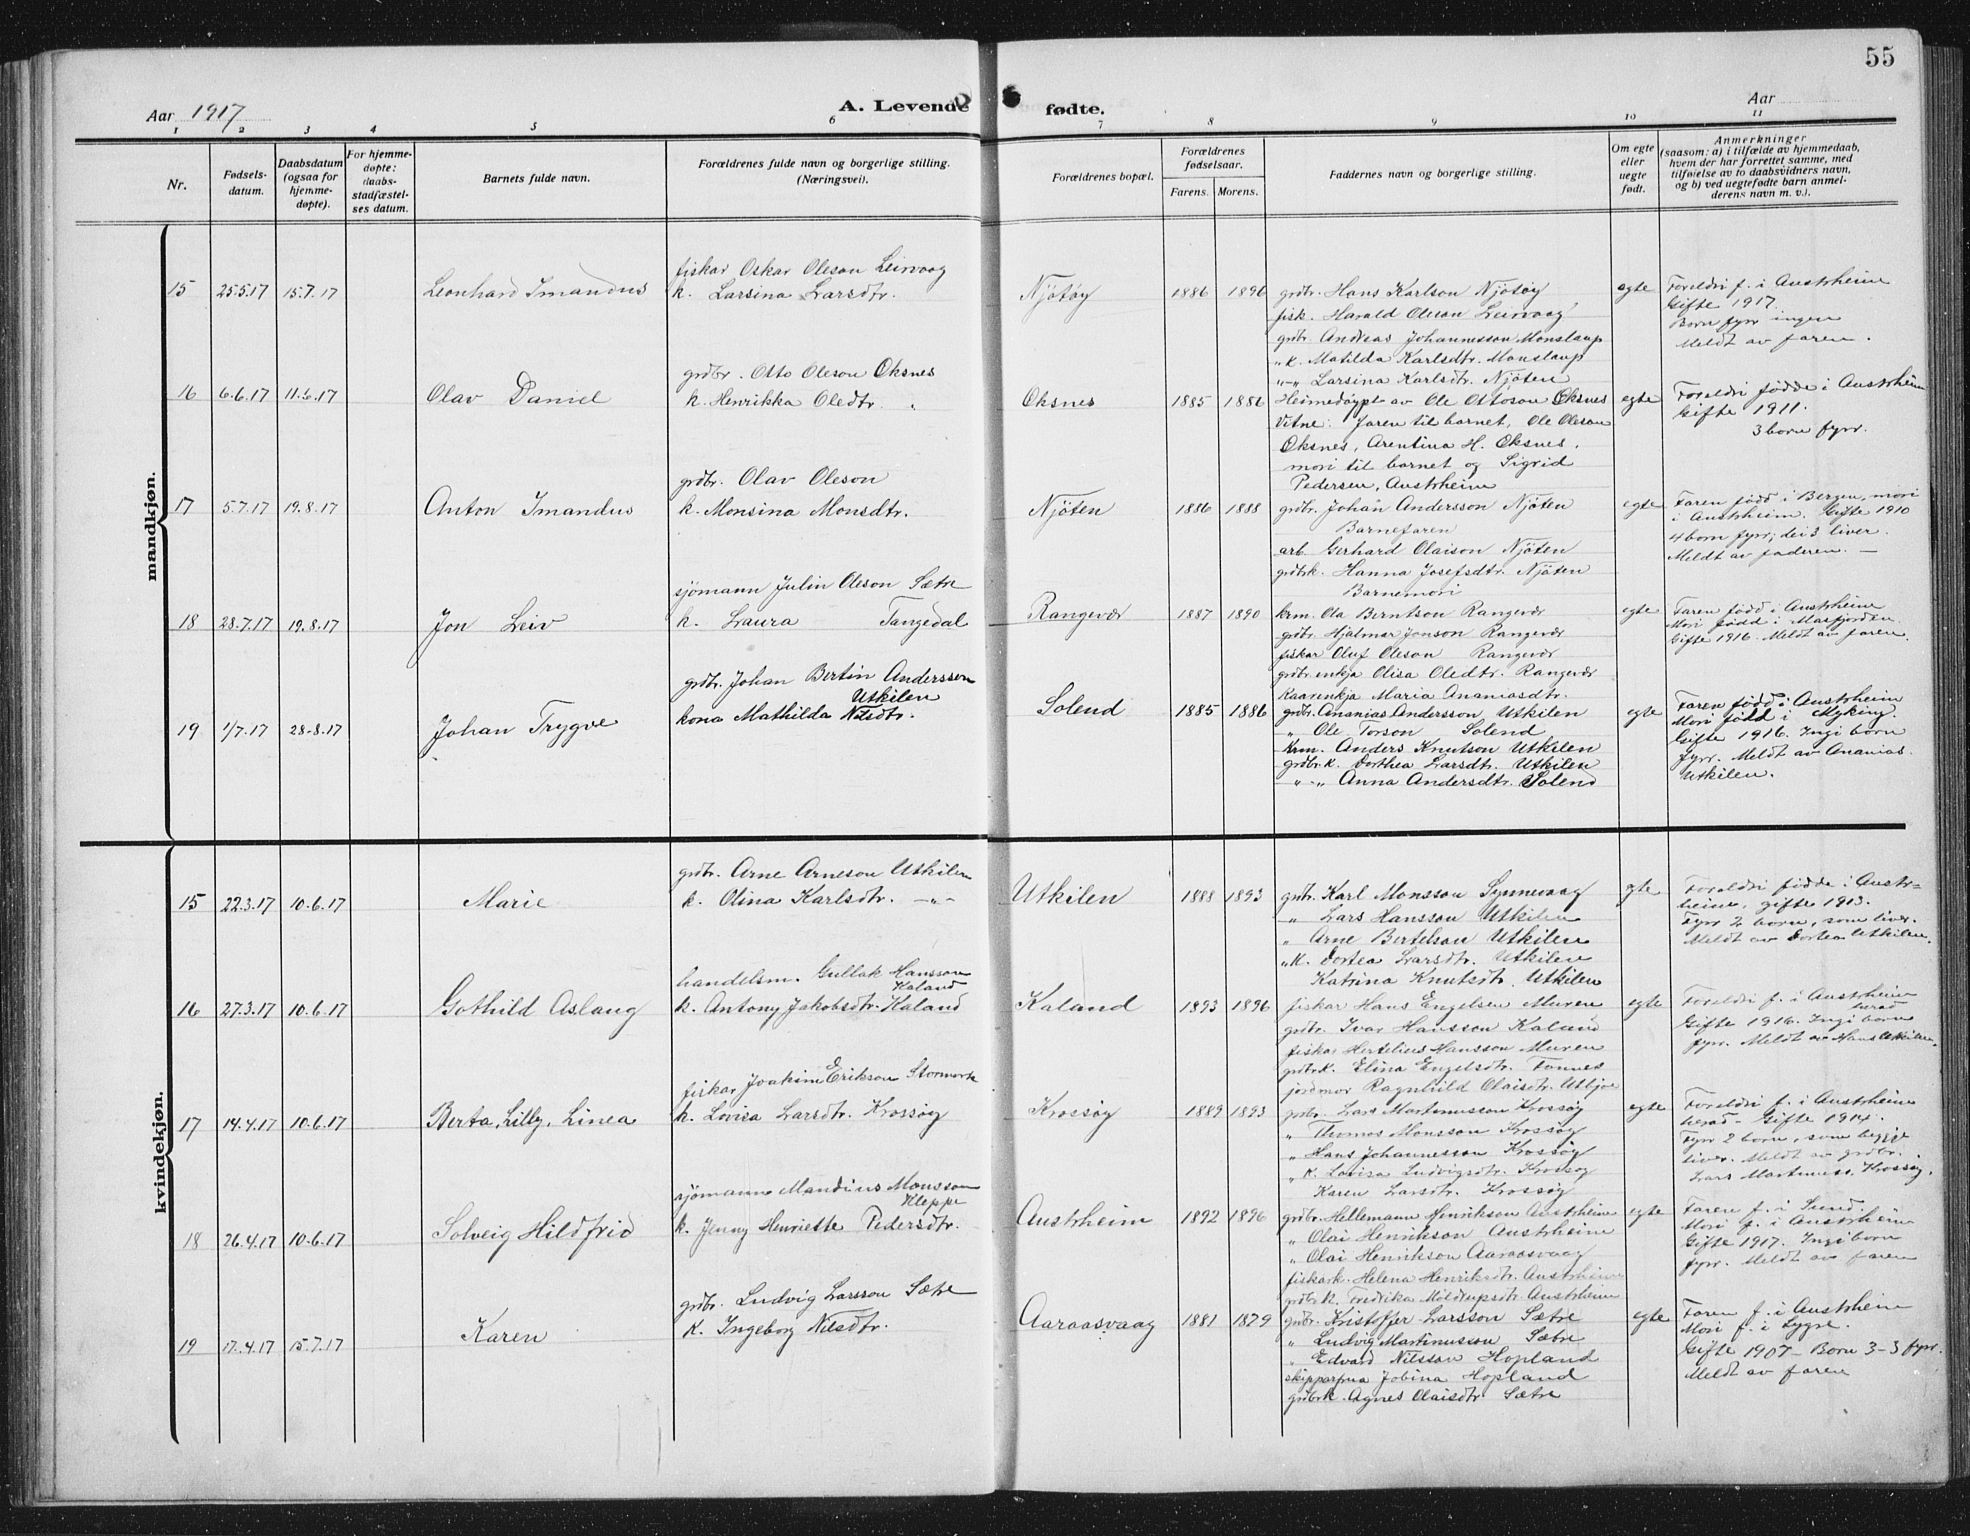 55
Aar 1917
A. Levende fødte.
Aar
1 2 3 4 5 6 7 8 9 10 11
Nr.
Fødsels-
datum.
Daabsdatum
(ogsaa for
hjemme-
døpte).
For hjemme-
døpte:
daabs-
stadfæstel-
ses datum.
Barnets fulde navn.
Forældrenes fulde navn og borgerlige stilling.
(Næringsvei).
Forældrenes bopæl.
Forældrenes
fødselsaar.
Farens. Morens.
Faddernes navn og borgerlige stilling.
Om egte
eller
uegte
født.
Anmerkninger
(saasom: a) i tilfælde av hjemmedaab,
hvem der har forrettet samme, med
tilføielse av to daabsvidners navn,
og b) ved uegtefødte barn anmel-
derens navn m. v.).
mandkjøn.
15 25.5.17 15.7.17 Leonhard Imandus
fiskar Oskar Oleson Leirvaag
k. Larsina Larsdtr.
Njøtøy 1886 1896
grdbr. Hans Karlson Njøtøy
fisk. Harald Oleson Leirvaag
grdbr. Andreas Johannesson Monslaup
" k. Matilda Karlsdtr. Monslaup
"-" Larsina Karlsdtr. Njøten
egte
Foreldri f. i Austrheim
Gifte 1917.
Born fyrr ingen
Meldt av faren.
16 6.6.17 11.6.17 Olav Daniel
grdbr. Otto Oleson Oksnes
k. Henrikka Oledtr. "
Oksnes 1885 1886
Heimedøypt av Ole Ottoson Oksnes
Vitne: Faren til barnet, Ole Oleson
Oksnes, Arentina H. Oksnes,
mori til barnet og Sigrid
Pedersen, Austrheim
egte
Foreldri fødde i Austrheim
Gifte 1911.
3 born fyrr.
17 5.7.17 19.8.17 Anton Imandus
grdbr. Olav Oleson
k. Monsina Monsdtr.
Njøten 1886 1888
grdbr. Johan Andersson Njøten
Barnefaren
arb. Gerhard Olaison Njøten
grdbrk. Hanna Josefsdtr. Njøten
Barnemori
egte
Faren fødd i Bergen, mori
i Austrheim. Gifte 1910
4 born fyrr; dei 3 liver.
Meldt av faderen. —
18 28.7.17 19.8.17 Jon Leiv
sjømann Julin Oleson Sætre
k. Laura Tangedal
Rangevær 1887 1890
krm. Ola Berntson Rangevær
grdbr. Hjalmar Jonson Rangevær
fiskar Oluf Oleson Rangevær
grdbr.enkja Olisa Oledtr. Rangevær
Kaarenkja Maria Ananiasdtr.
egte
Faren fødd i Austrheim
Mori fødd i Masfjorden
Gifte 1916. Meldt av faren.
19 1/7.17 28-8.17 Johan Trygve
grdbr. Johan Bertin Andersson
Utkilen
kona Mathilda Nilsdtr.
Solend 1885 1886
grdbr. Ananias Andersson Utkilen
" Ole Torson Solend
Krm. Anders Knutson Utkilen
grdbr.k. Dorthea Larsdtr. Utkilen
"-" Anna Andersdtr. Solend
egte
Faren fødd i Austrheim
Mori fødd i Myking.
Gifte 1916. Ingi born
fyrr. Meldt av Ananias
Utkilen.
kvindekjøn.
15 22.3.17 10.6.17 Marie
grdbr. Arne Arneson Utkilen
k. Olina Karlsdtr. —"—
Utkilen 1888 1893
grdbr. Karl Monsson Synnevaag
" Lars Hansson Utkilen
" Arne Bertelson Utkilen
"k. Dortea Larsdtr. Utkilen
Katrina Knutsdtr. Utkilen
egte
Foreldri fødde i Austr-
heim, gifte 1913.
Fyrr 2 born, som liver.
Meldt av Dortea Utkilen.
16 27.3.17 10.6.17 Gothild Aslaug
handelsm. Gullak Hansson
Kaland
k. Antony Jakobsdtr. Kaland
Kaland 1893 1896
fiskar Hans Engelsen Muren
grdbr. Ivar Hansson Kaland
fiskar Hertelius Hansson Muren
grdbrk. Elina Engelsdtr. Fonnes
jordmor Ragnhild Olaisdtr. Utkjoe
egte
Foreldri f. i Austrheim
herad
Gifte 1916. Ingi born
fyrr. Meldt av Hans Utkilen.
17 14.4.17 10.6.17 Berta, Lilly, Linea
fiskar Joakim Erikson Stormark
k. Lovisa Larsdtr. Krossøy
Krossøy 1889 1893
grdbr. Lars Martinusson Krossøy
" Thomas Monsson Krossøy
" Hans Johannesson Krossøy
" k. Lovisa Ludvigsdtr. Krossøy
Karen Larsdtr. Krossøy
egte
Foreldri f. i Austrheim
herad - Gifte 1914.
Fyrr 2 born, som begge
liver. Meldt av grdbr.
Lars Martinuss. Krossøy.
18 26.4.17 10.6.17 Solveig Hildfrid
sjømann Mandius Monsson
Kleppe
k. Jenny Henriette Pedersdtr.
Austrheim 1892 1896
grdbr. Hellemann Henrikson Austrheim
" Olai Henrikson Austrheim
" Olai Henrikson Aaraasvaag
fiskark. Helena Henriksdtr. Austrheim
grdbr k. Fredrika Mildrupsdtr. Austrheim
egte
Faren f. i Sund.
Mori f. i Austrheim
Gifte 1917. Ingi born
fyrr. Meldt av faren
19 17.4.17 15.7.17 Karen
grdbr. Ludvig Larsson Sætre
k. Ingeborg Nilsdtr.
Aaraasvaag 1881 1879
grdbr. Kristoffer Larsson Sætre
" Ludvig Martinusson Sætre
" Edvard Nilsson Hopland
skipparfrua Jobina Hopland
grdbrk. Agnes Olaisdtr. Sætre
egte
Faren f. i Austrheim
Mori f. i Lygre.
Gifte 1907 - Born 3 - 3 fyrr.
Meldt av faren